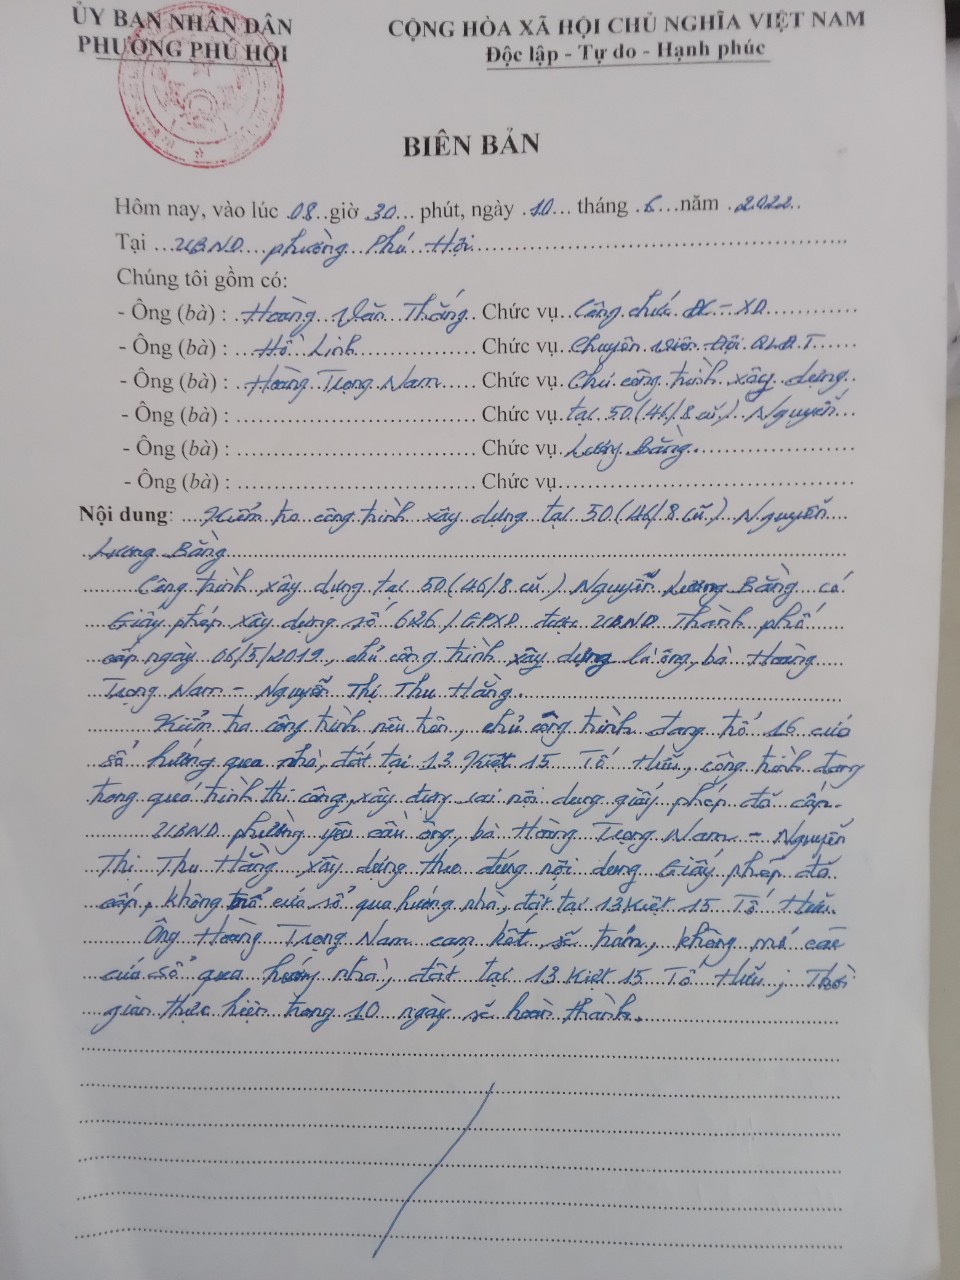 ỦY BAN NHÂN DÂN
PHƯỜNG PHÚ HỘI
CỘNG HÒA XÃ HỘI CHỦ NGHĨA VIỆT NAM
Độc lập - Tự do - Hạnh phúc
BIÊN BẢN
Hôm nay, vào lúc 08 giờ 30 phút, ngày 10 tháng 6 năm 2022
Tại UBND phường Phú Hội
Chúng tôi gồm có:
- Ông (bà) : Hoàng Văn Thắng Chức vụ Công chức ĐC-XD
- Ông (bà) : Hồ Linh Chức vụ Chuyên viên Đội QLĐT
- Ông (bà) : Hoàng Trọng Nam Chức vụ Chủ công trình xây dựng
- Ông (bà) : Chức vụ tại 50 (46/8 cũ) Nguyễn
- Ông (bà) : Chức vụ Lương Bằng
- Ông (bà) : Chức vụ
Nội dung: Kiểm tra công trình xây dựng tại 50 (46/8 cũ) Nguyễn
Lương Bằng
Công trình xây dựng tại 50 (46/8 cũ) Nguyễn Lương Bằng có
Giấy phép xây dựng số 626/GPXD được UBND Thành phố
cấp ngày 06/5/2019, chủ công trình xây dựng là ông, bà Hoàng
Trọng Nam - Nguyễn Thị Thu Hằng.
Kiểm tra công trình nêu trên, chủ công trình đang trổ 16 cửa
sổ hướng qua nhà, đất tại 13 Kiệt 15 Tố Hữu, công trình đang
trong quá trình thi công, xây dựng sai nội dung giấy phép đã cấp.
UBND phường yêu cầu ông, bà Hoàng Trọng Nam - Nguyễn
Thị Thu Hằng xây dựng theo đúng nội dung Giấy phép đã
cấp, không trổ cửa sổ qua hướng nhà, đất tại 13 Kiệt 15 Tố Hữu.
Ông Hoàng Trọng Nam cam kết sẽ trám, không mở các
cửa sổ qua hướng nhà, đất tại 13 Kiệt 15 Tố Hữu; Thời
gian thực hiện trong 10 ngày sẽ hoàn thành.